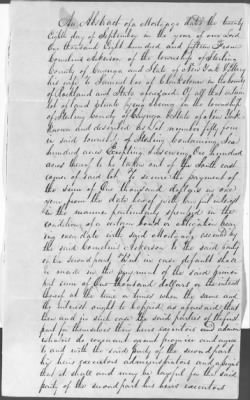 An Abstract of a Mortgage dated the twenty
eighth day of September in the year of our Lord
One thousand eight hundred and fifteen From
Cornelius Ackerson of the township of Sterling
County of Cayuga and State of New York
and to Samuel of Clarkstown in the county
of Rockland and State aforesaid Of all that certain
lot of land situate lying being in the township
of Sterling County of Cayuga State of New York
known and described as Lot number fifty four
in said township of Sterling Containing Six
hundred acres Excepting & reserving One hundred
acres thereof to be taken out of the South east
corner of said lot To secure the payment of
the sum of One thousand dollars in one
year from the date hereof with lawful interest
in the manner particularly specified in the
condition of a certain bond or obligation bear
ing even date with said Mortgage executed by
the said Cornelius Ackerson to the said party
of the second part That in case default shall
be made in the payment of the said princi
pal sum of One thousand dollars or the interest
thereof at the time or times when the same and
the interest ought to be paid as aforesaid that
then and in such case the said parties of the first
part for themselves their heirs executors & admin
istrators do covenant grant promise and agree
to and with the said party of the second part
his heirs executors administrators and assigns
that it shall and may be lawful for the said
party of the second part his heirs executors